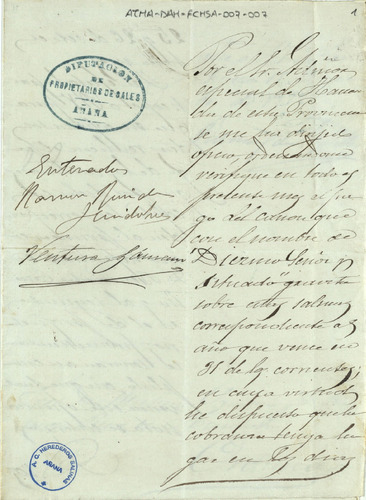 ATHA-DAH-FCHSA-007-007
1
DIPUTACION
DE
PROPIETARIOS DE SALES
AÑANA
Por el Sr. Admor
especial de Hacien
da de esta Provincia
se me ha dirigido
oficio, a
verifique en todo el
presente mes el pa
go del canon que
con el nombre de
Diezmo Señor y
Situado" gravita
sobre estas salinas
correspondiente al
año que vence en
31 de los corrientes;
en cuya virtud
he dispuesto que la
cobranza tenga lu
gar en los dias
Enterados
Ventura
A. C. HEREDEROS SALINAS
AÑANA